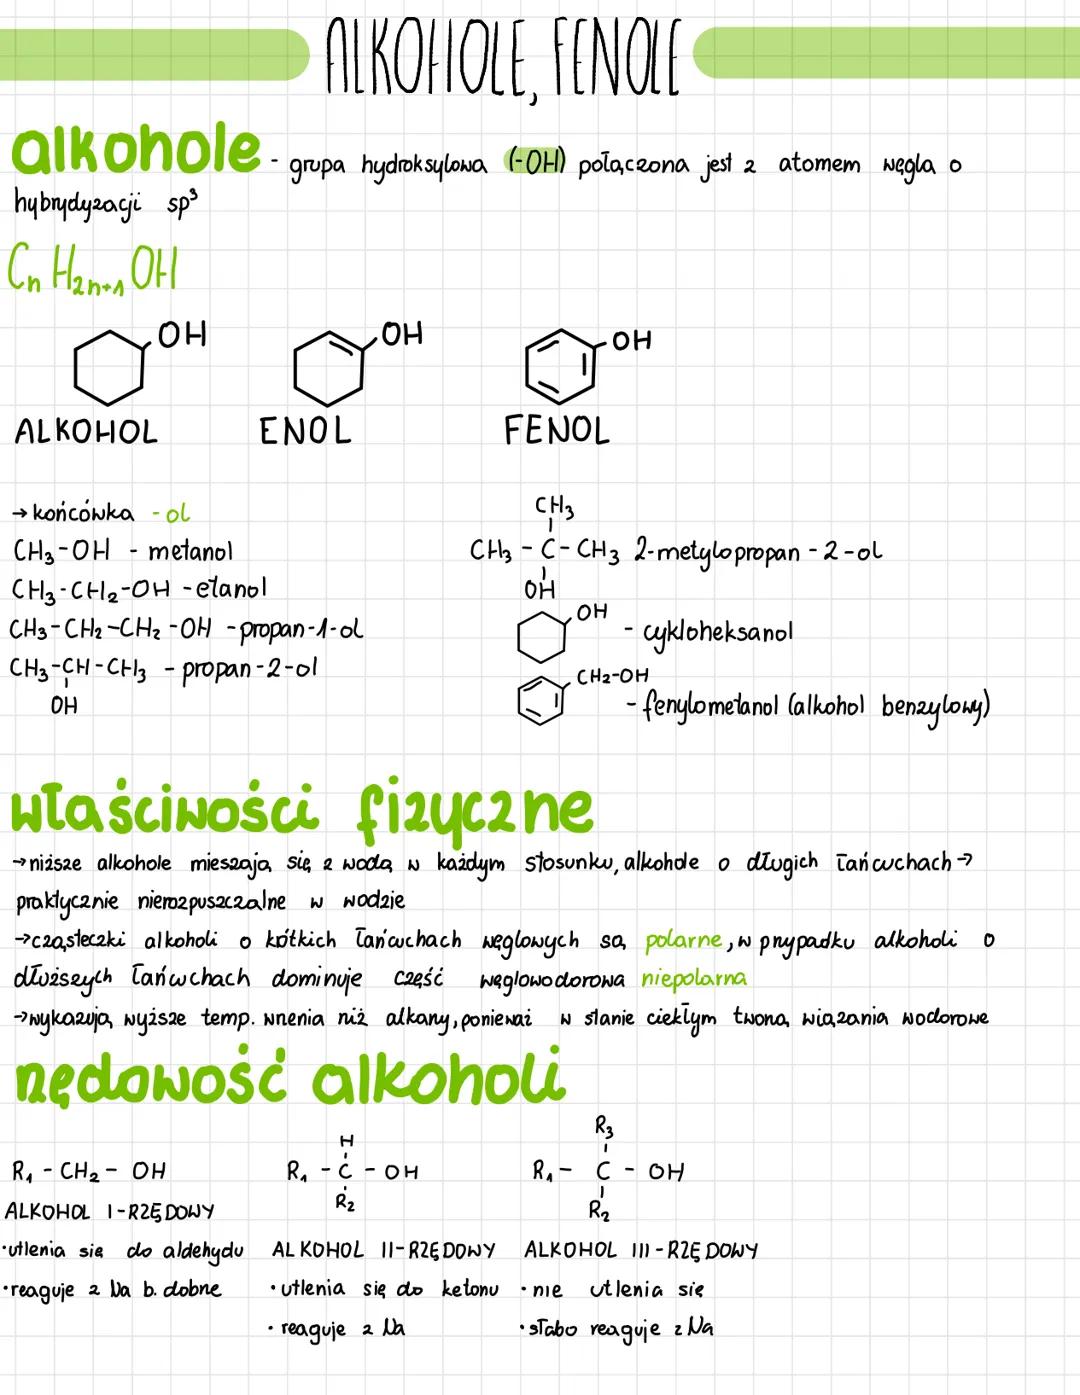 ALKOHOLE, FENOLE
alkohole - grupa hydroksylowa (-OH) połączona jest z atomem węgla o
hybrydyzacji sp³
CnH2n+1OH
OH OH OH
ALKOHOL ENOL FENOL
→ końcówka -ol
CH3-OH - metanol
CH3-CH2-OH - etanol
CH3-CH2-CH2-OH - propan-1-ol
CH3-CH-CH3 - propan-2-ol
OH
CH3
CH3 - C - CH3 2-metylopropan-2-ol
OH
OH
- cykloheksanol
CH2-OH
- fenylometanol (alkohol benzylowy)
właściwości fizyczne
→ niższe alkohole mieszają się z wodą w każdym stosunku, alkohole o długich łańcuchach →
praktycznie nierozpuszczalne w wodzie
→ cząsteczki alkoholi o krótkich łańcuchach węglowych są polarne, w przypadku alkoholi o
dłuższych łańcuchach dominuje część węglowodorowa niepolarna
→ wykazują wyższe temp. wrzenia niż alkany, ponieważ w stanie ciekłym tworzą wiązania wodorowe
rzędowość alkoholi
R1 - CH2 - OH
ALKOHOL I-RZĘDOWY
• utlenia się do aldehydu
• reaguje z Na b. dobrze
H
R1 - C - OH
R2
ALKOHOL II-RZĘDOWY
• utlenia się do ketonu
• reaguje z Na
R3
R1 - C - OH
R2
ALKOHOL III-RZĘDOWY
• nie utlenia się
• słabo reaguje z Na